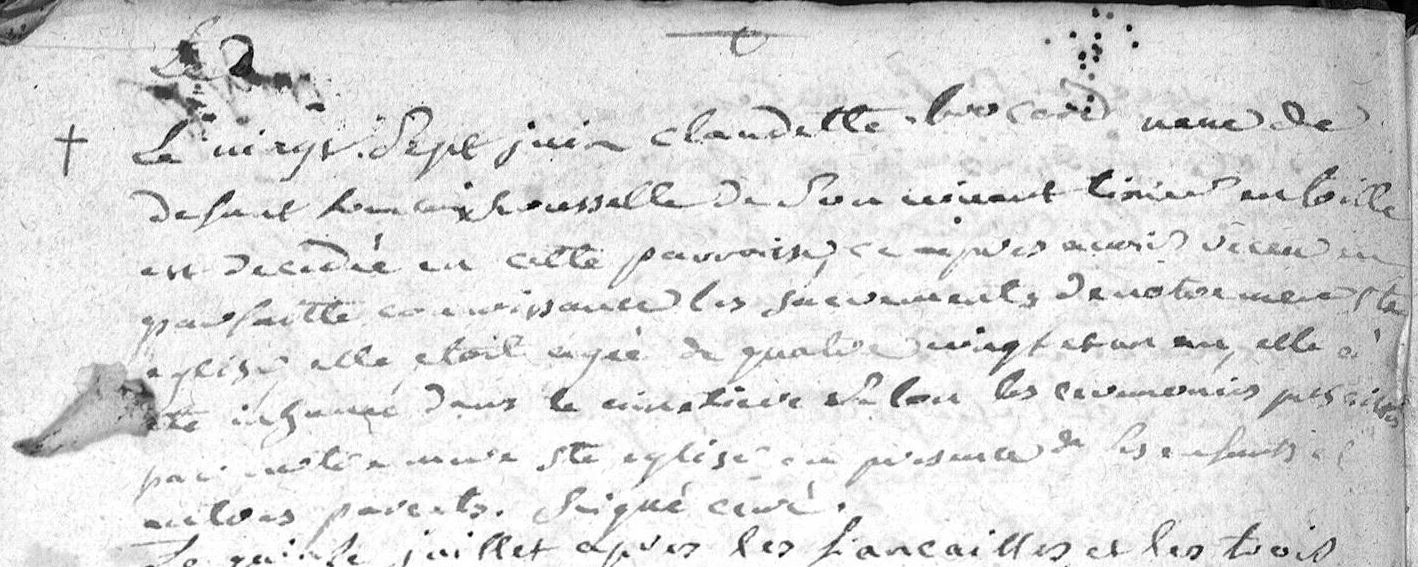 Le 2
† Le vingt Sept juin claudette bocard veuve de
defunt housselle de Son vivant tissier en toille
est decedée en cette parroisse, ce apres avoir réceu en
parfaitte connoissance les sacrements de notre mere Ste
eglise, elle etoit agée de quatre vingt et un an, elle à
été inhumé dans le cimetiere selon les ceremonies prescrites
par notre mere Ste eglise en presence de ses enfants et
autres parents. Seigné curé.
Le quinze juillet apres les fiancailles et les trois